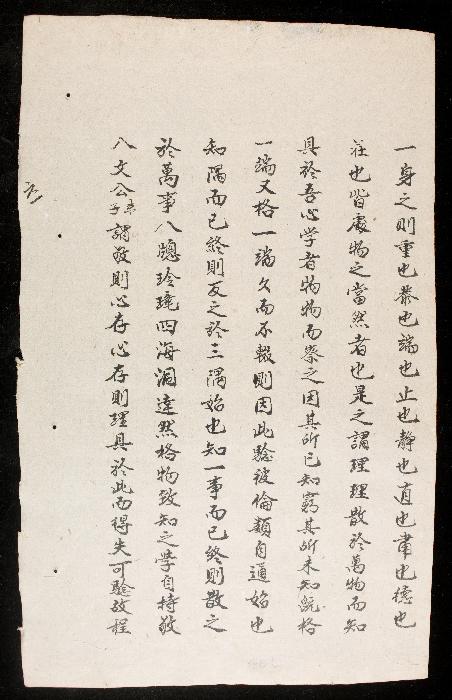 一身之則重也恭也端也止也静也直也肅也德也
莊也皆處物之當然者也是之謂理理散於萬物而知
具於吾心学者物物而察之因其所已知窮其所未知既格
一端又格一端久而不輟則因此驗彼倫類自通始也
知隅而已終則反之於三隅始也知一事而已終則散之
於萬事八牕玲瓏四海洞達然格物致知之學自持敬
入文公朱子謂敬則心存心存則理具於此而得失可驗故程